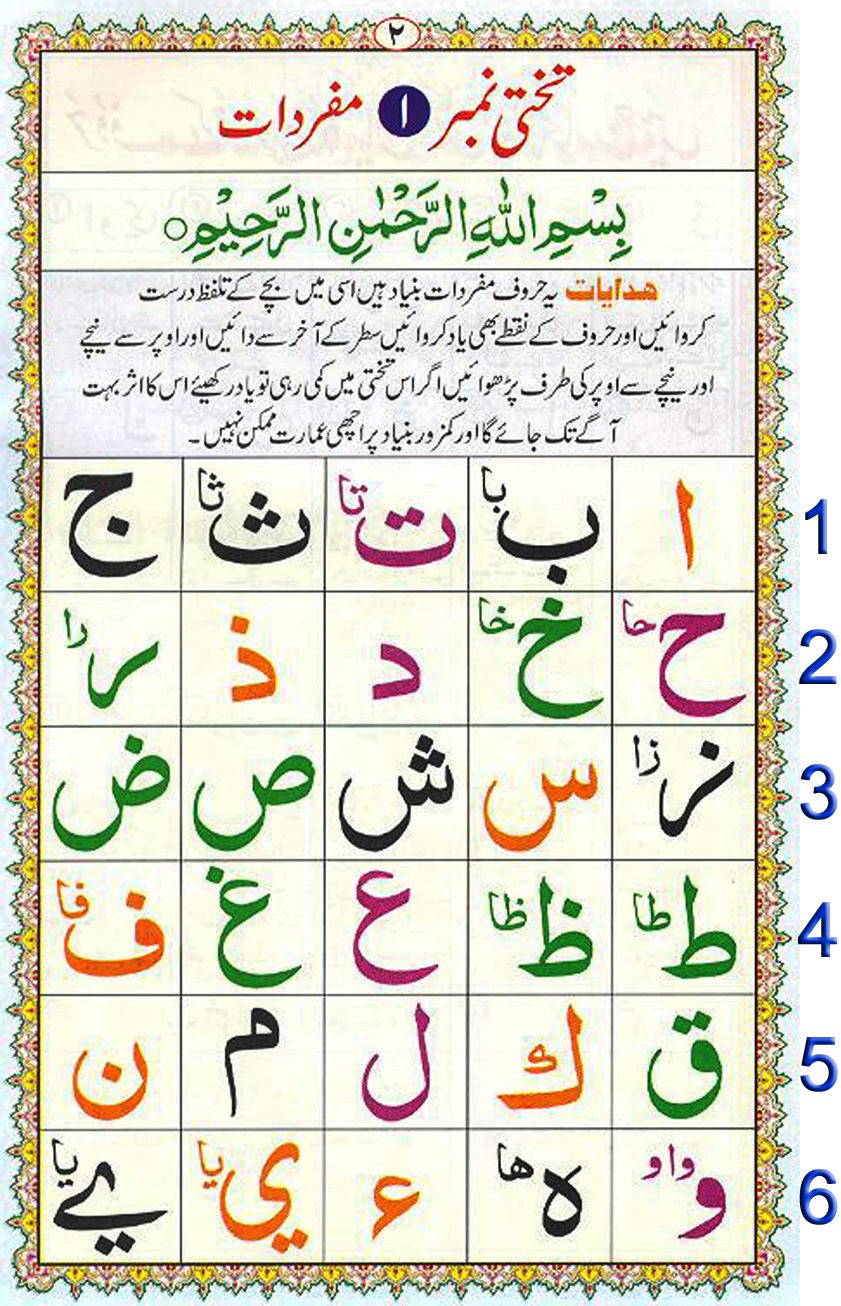 ٢
تختی نمبر ١ مفردات
بِسْمِ اللّٰهِ الرَّحْمٰنِ الرَّحِيْمِ○
ھدایات یہ حروف مفردات بنیاد ہیں اسی میں بچے کے تلفظ درست
کروائیں اور حروف کے نقطے بھی یاد کروائیں سطر کے آخر سے دائیں اور اوپر سے نیچے
اور نیچے سے اوپر کی طرف پڑھوائیں اگر اس تختی میں کمی رہی تو یاد رکھیئے اس کا اثر بہت
آگے تک جائے گا اور کمزور بنیاد پر اچھی عمارت ممکن نہیں۔
ا ب با ت تا ث ثا ج 1
ح حا خ خا د ذ ر را 2
ز زا س ش ص ض 3
ط طا ظ ظا ع غ ف فا 4
ق ك ل م ن 5
و واو ه ها ء ي يا ے يا 6